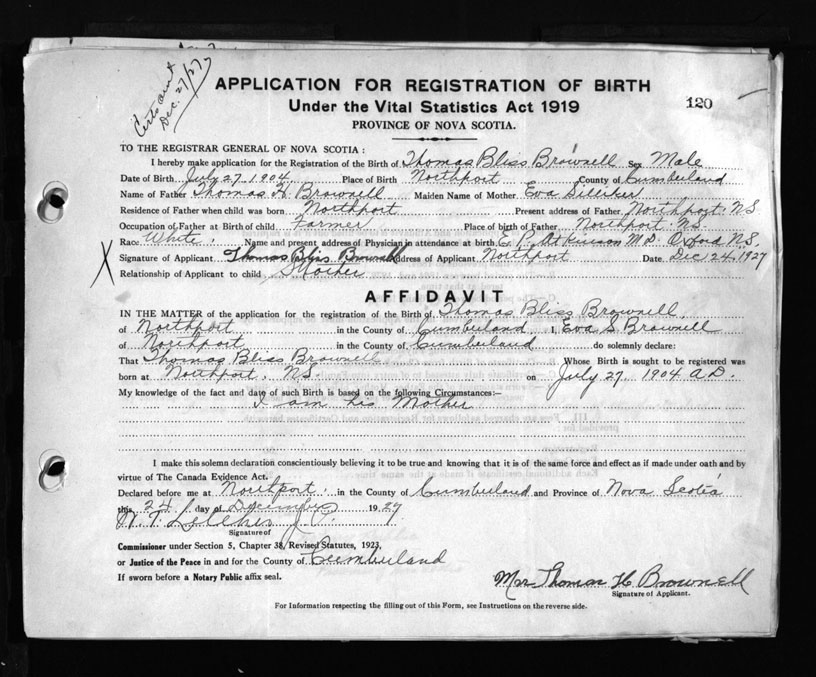 Dec. 27/27
APPLICATION FOR REGISTRATION OF BIRTH
120
Under the Vital Statistics Act 1919
PROVINCE OF NOVA SCOTIA.
TO THE REGISTRAR GENERAL OF NOVA SCOTIA :
I hereby make application for the Registration of the Birth of Thomas Bliss Brownell Sex Male
Date of Birth July 27, 1904 Place of Birth Northport County of Cumberland
Name of Father Thomas H. Brownell Maiden Name of Mother Eva Silliker
Residence of Father when child was born Northport Present address of Father Northport. NS
Occupation of Father at Birth of child Farmer Place of birth of Father Northport NS.
Race White. Name and present address of Physician in attendance at birth E. P. Atkinson M.D. Oxford NS.
X Signature of Applicant Thomas Bliss Brownell Address of Applicant Northport Date Dec 24, 1927
Relationship of Applicant to child Mother
AFFIDAVIT
IN THE MATTER of the application for the registration of the Birth of Thomas Bliss Brownell,
of Northport in the County of Cumberland I, Eva S Brownell
of Northport in the County of Cumberland do solemnly declare:
That Thomas Bliss Brownell Whose Birth is sought to be registered was
born at Northport, NS. on July 27, 1904 A.D.
My knowledge of the fact and date of such Birth is based on the following Circumstances:—
I am his Mother
I make this solemn declaration conscientiously believing it to be true and knowing that it is of the same force and effect as if made under oath and by
virtue of The Canada Evidence Act.
Declared before me at Northport in the County of Cumberland and Province of Nova Scotia
this 24 day of December 1927
J. P.
Signature of
Commissioner under Section 5, Chapter 38, Revised Statutes, 1923,
or Justice of the Peace in and for the County of Cumberland
If sworn before a Notary Public affix seal.
Mrs Thomas H. Brownell
Signature of Applicant.
For Information respecting the filling out of this Form, see Instructions on the reverse side.